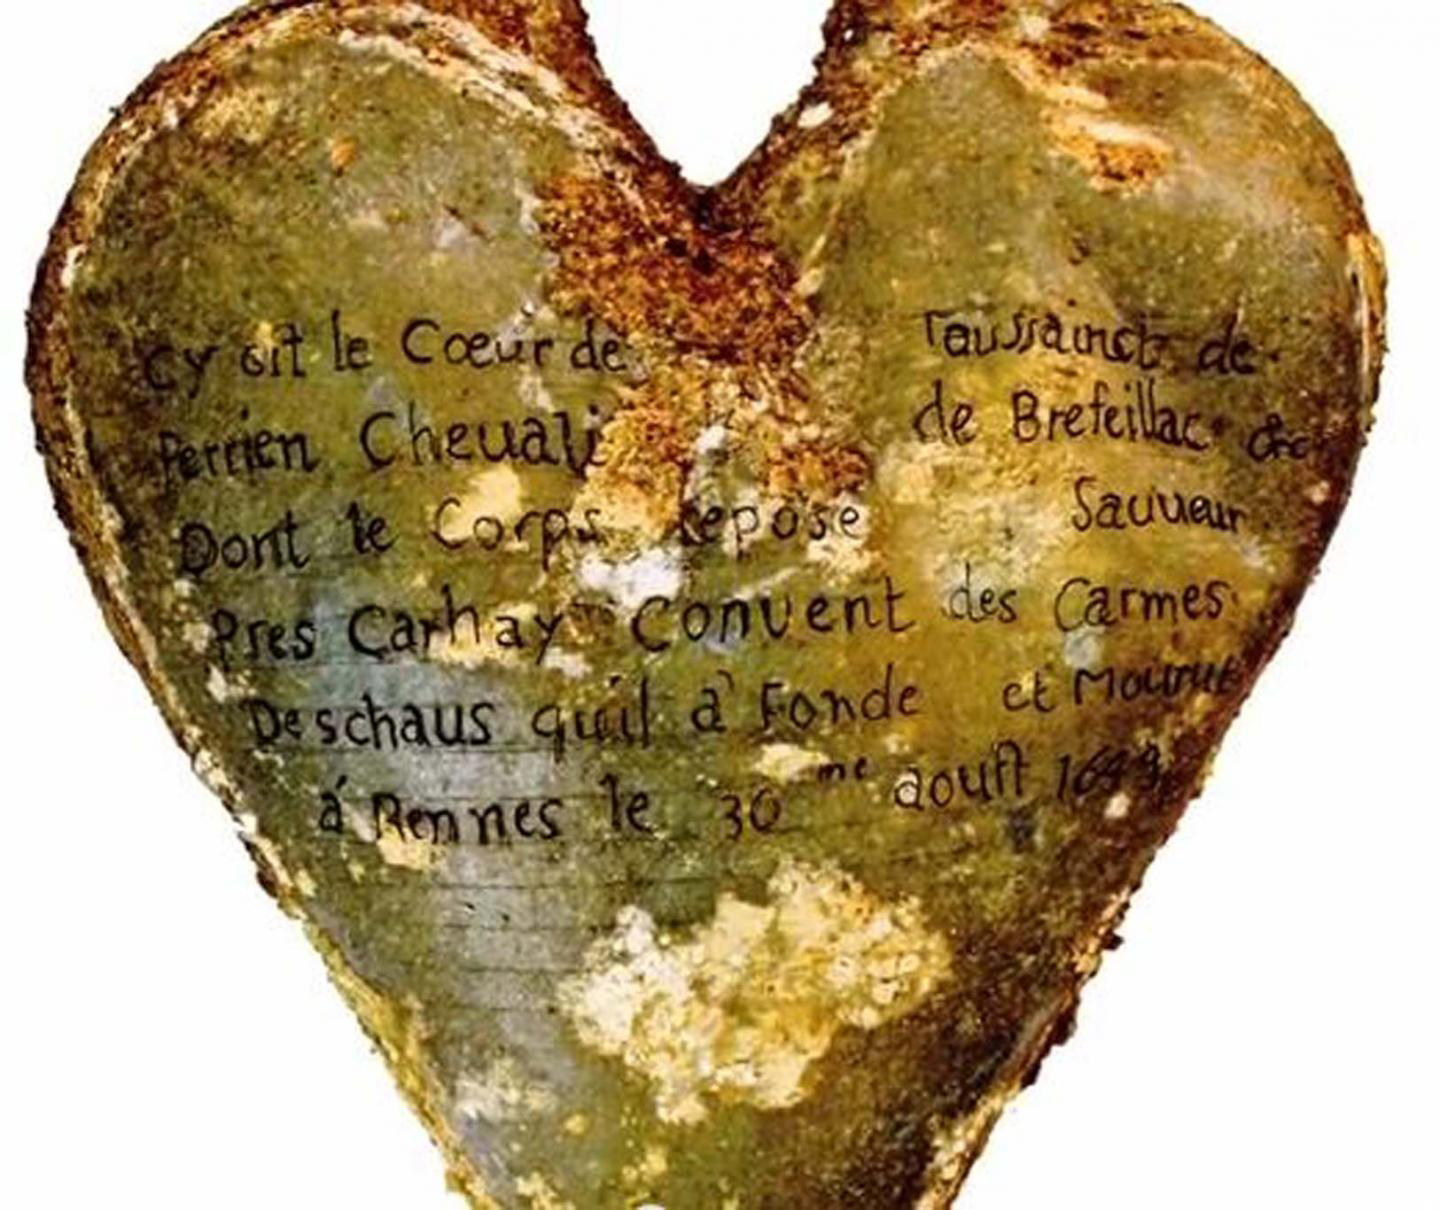 Cy git le Cœur de Taussainct de
Perrien Cheuali de Brefeillac &c
Dont le Corps repose Sauueur
Pres Carhay Convent des Carmes
Deschaus quil à Fonde et Mourut
á Rennes le 30me aouſt 1649